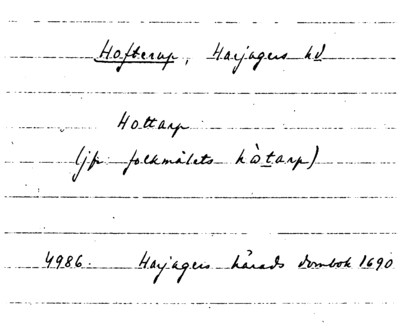 Hofterup, Harjagers hd
Hottarp
(jfr folkmålets hòtarp)
4986. Harjagers härads dombok 1690